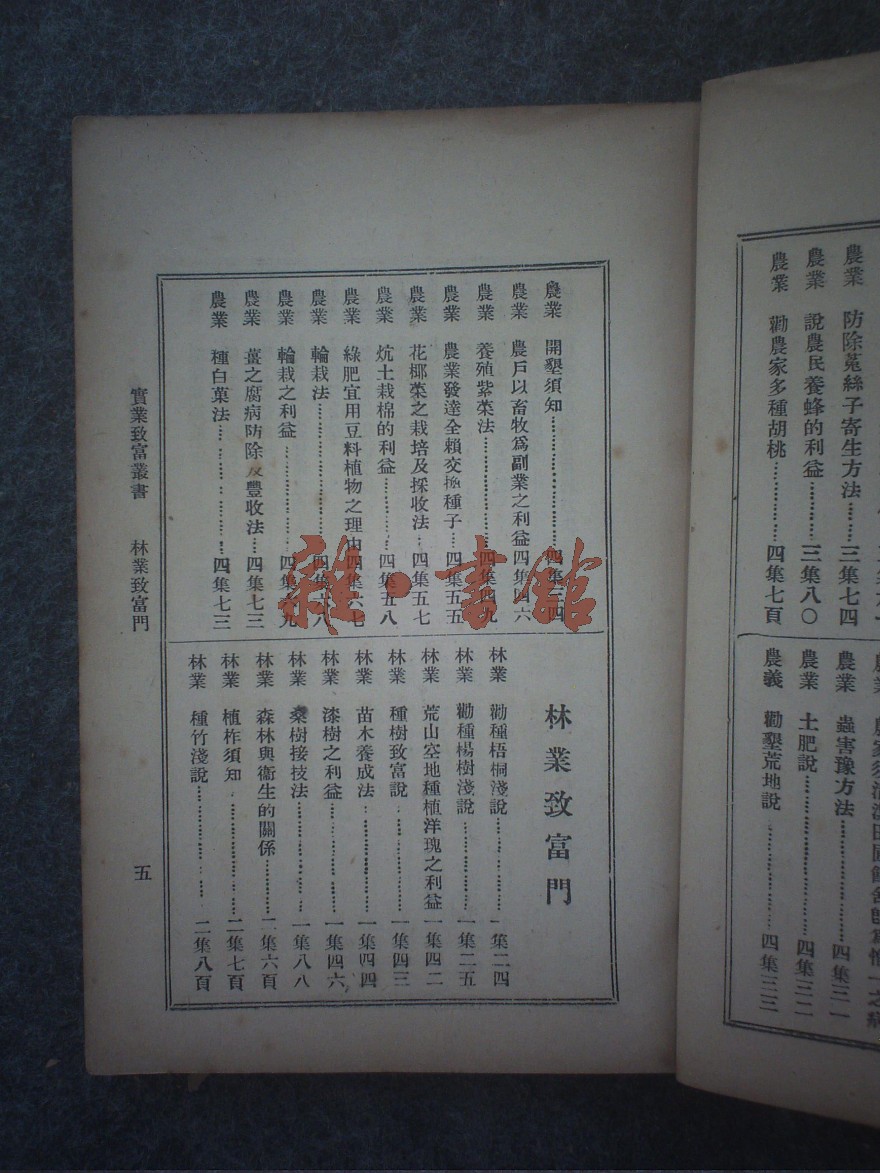 農業 防除菟絲子寄生方法……三集七四
農業 說農民養蜂的利益………三集八〇
農業 勸農家多種胡桃…………四集七頁
農業 蟲害豫方法………………四集三一
農業 土肥說……………………四集三二
農義 勸墾荒地說………………四集三三
農業 開墾須知…………………四集三四
農業 農戶以畜牧爲副業之利益四集四六
農業 養殖紫菜法………………四集四九
農業 農業發達全賴交換種子…四集五五
農業 花椰菜之栽培及採收法…四集五七
農業 炕土栽棉的利益…………四集五八
農業 綠肥宜用豆料植物之理由四集六七
農業 輪栽法……………………四集六八
農業 輪栽之利益………………四集六九
農業 薑之腐病防除及豐收法…四集七三
農業 種白菓法…………………四集七三
林業致富門
林業 勸種梧桐淺說……………一集二四
林業 勸種楊樹淺說……………一集二五
林業 荒山空地種植洋瑰之利益一集四二
林業 種樹致富說………………一集四三
林業 苗木養成法………………一集四四
林業 漆樹之利益………………一集四六
林業 桑樹接技法………………一集八八
林業 森林與衞生的關係………二集六頁
林業 植柞須知…………………二集七頁
林業 種竹淺說…………………二集八頁
實業致富叢書 林業致富門 五
雜·書館